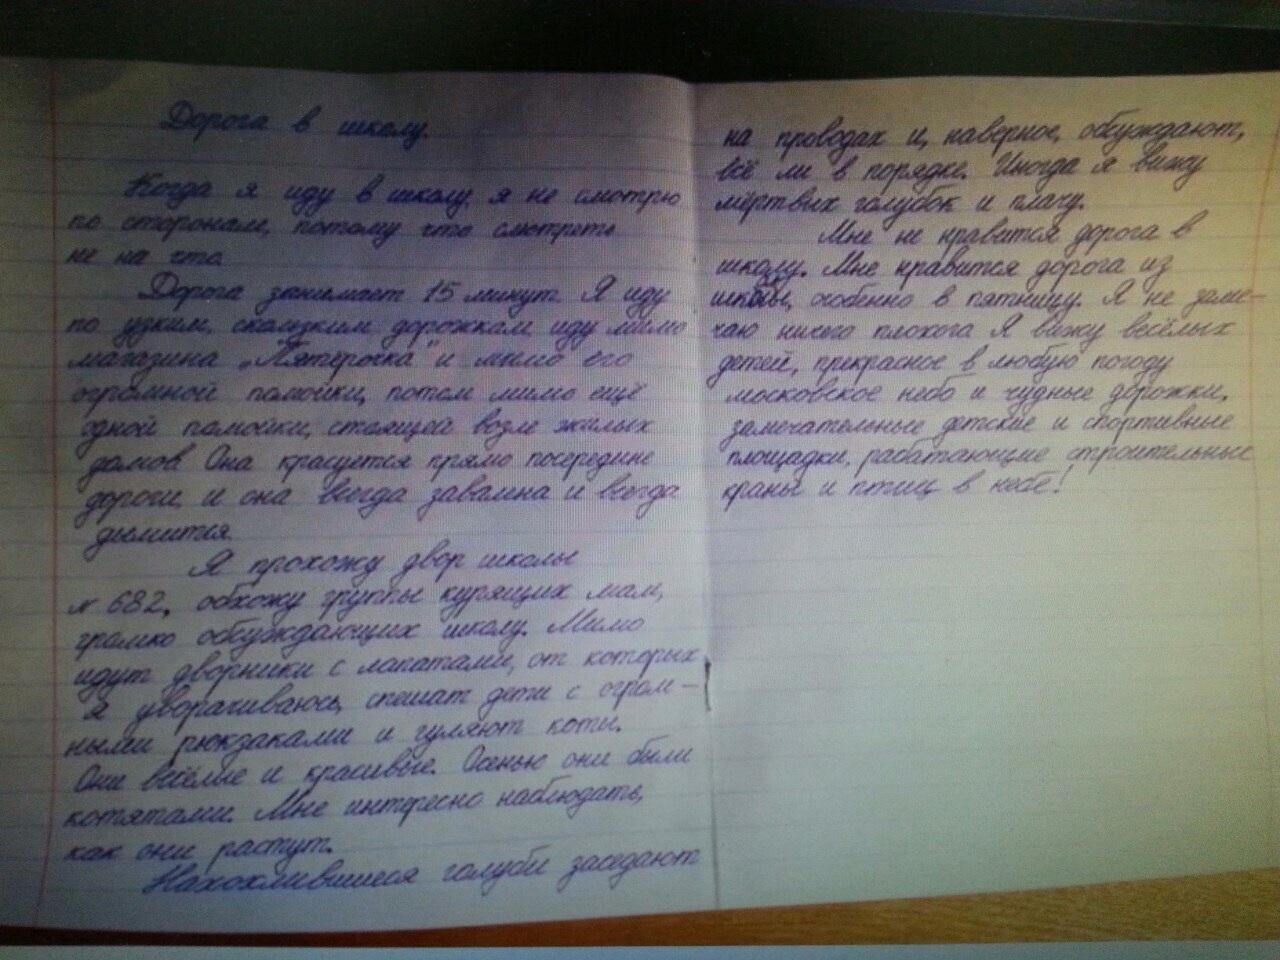 Дорога в школу.
Когда я иду в школу, я не смотрю
по сторонам, потому что смотреть
не на что.
Дорога занимает 15 минут. Я иду
по узким, скользким дорожкам, иду мимо
магазина „Пятёрочка" и мимо его
огромной помойки, потом мимо ещё
одной помойки, стоящей возле жилых
домов. Она красуется прямо посередине
дороги, и она всегда завалена и всегда
дымится.
Я прохожу двор школы
№ 682, обхожу группы курящих мам,
громко обсуждающих школу. Мимо
идут дворники с лопатами, от которых
я уворачиваюсь, спешат дети с огром-
ными рюкзаками и гуляют коты.
Они весёлые и красивые. Осенью они были
котятами. Мне интересно наблюдать,
как они растут.
Нахохлившиеся голуби заседают
на проводах и, наверное, обсуждают,
всё ли в порядке. Иногда я вижу
мёртвых голубок и плачу.
Мне не нравится дорога в
школу. Мне нравится дорога из
школы, особенно в пятницу. Я не заме-
чаю ничего плохого. Я вижу весёлых
детей, прекрасное в любую погоду
московское небо и чудные дорожки,
замечательные детские и спортивные
площадки, работающие строительные
краны и птиц в небе!